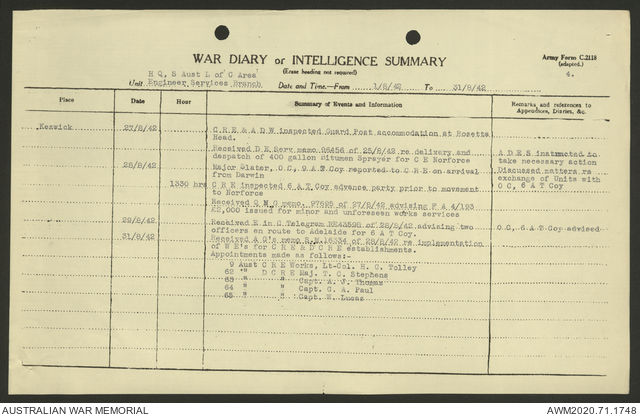 WAR DIARY or INTELLIGENCE SUMMARY
(Erase heading not required)
Army Form C.2118
(adapted.)
4.
H Q, S Aust L of C Area
Unit Engineer Services Branch Date and Time.—From 1/8/42 To 31/8/42
Place Date Hour Summary of Events and Information Remarks and references to Appendices, Diaries, &c.
Keswick 27/8/42 C R E & A D W inspected Guard Post accommodation at Rosetta
Head.
Received D E Serv memo 96456 of 25/8/42 re delivery and A D E S instructed to
despatch of 400 gallon Bitumen Sprayer for C E Norforce take necessary action
28/8/42 Major Slater, O C, 9 A T Coy reported to C R E on arrival Discussed matters re
from Darwin exchange of Units with
1330 hrs C R E inspected 6 A T Coy advance party prior to movement O C, 6 A T Coy
to Norforce
Received Q M G memo. 27625 of 27/8/42 advising F A 4/193
£2,000 issued for minor and unforeseen works services
29/8/42 Received E in C Telegram of 28/8/42 advising two O C, 6 A T Coy advised
officers en route to Adelaide for 6 A T Coy.
31/8/42 Received A G's memo 16334 of 28/8/42 re implementation
of W E's for C R E & D C R E establishments.
Appointments made as follows:-
9 Aust C R E Works, Lt-Col. H. C. Tolley
62 " D C R E Maj. T. C. Stephens
63 " " Capt. A. J. Thomas
64 " " Capt. C. A. Paul
65 " " Capt. W. Lucas
AUSTRALIAN WAR MEMORIAL
AWM2020.71.1748